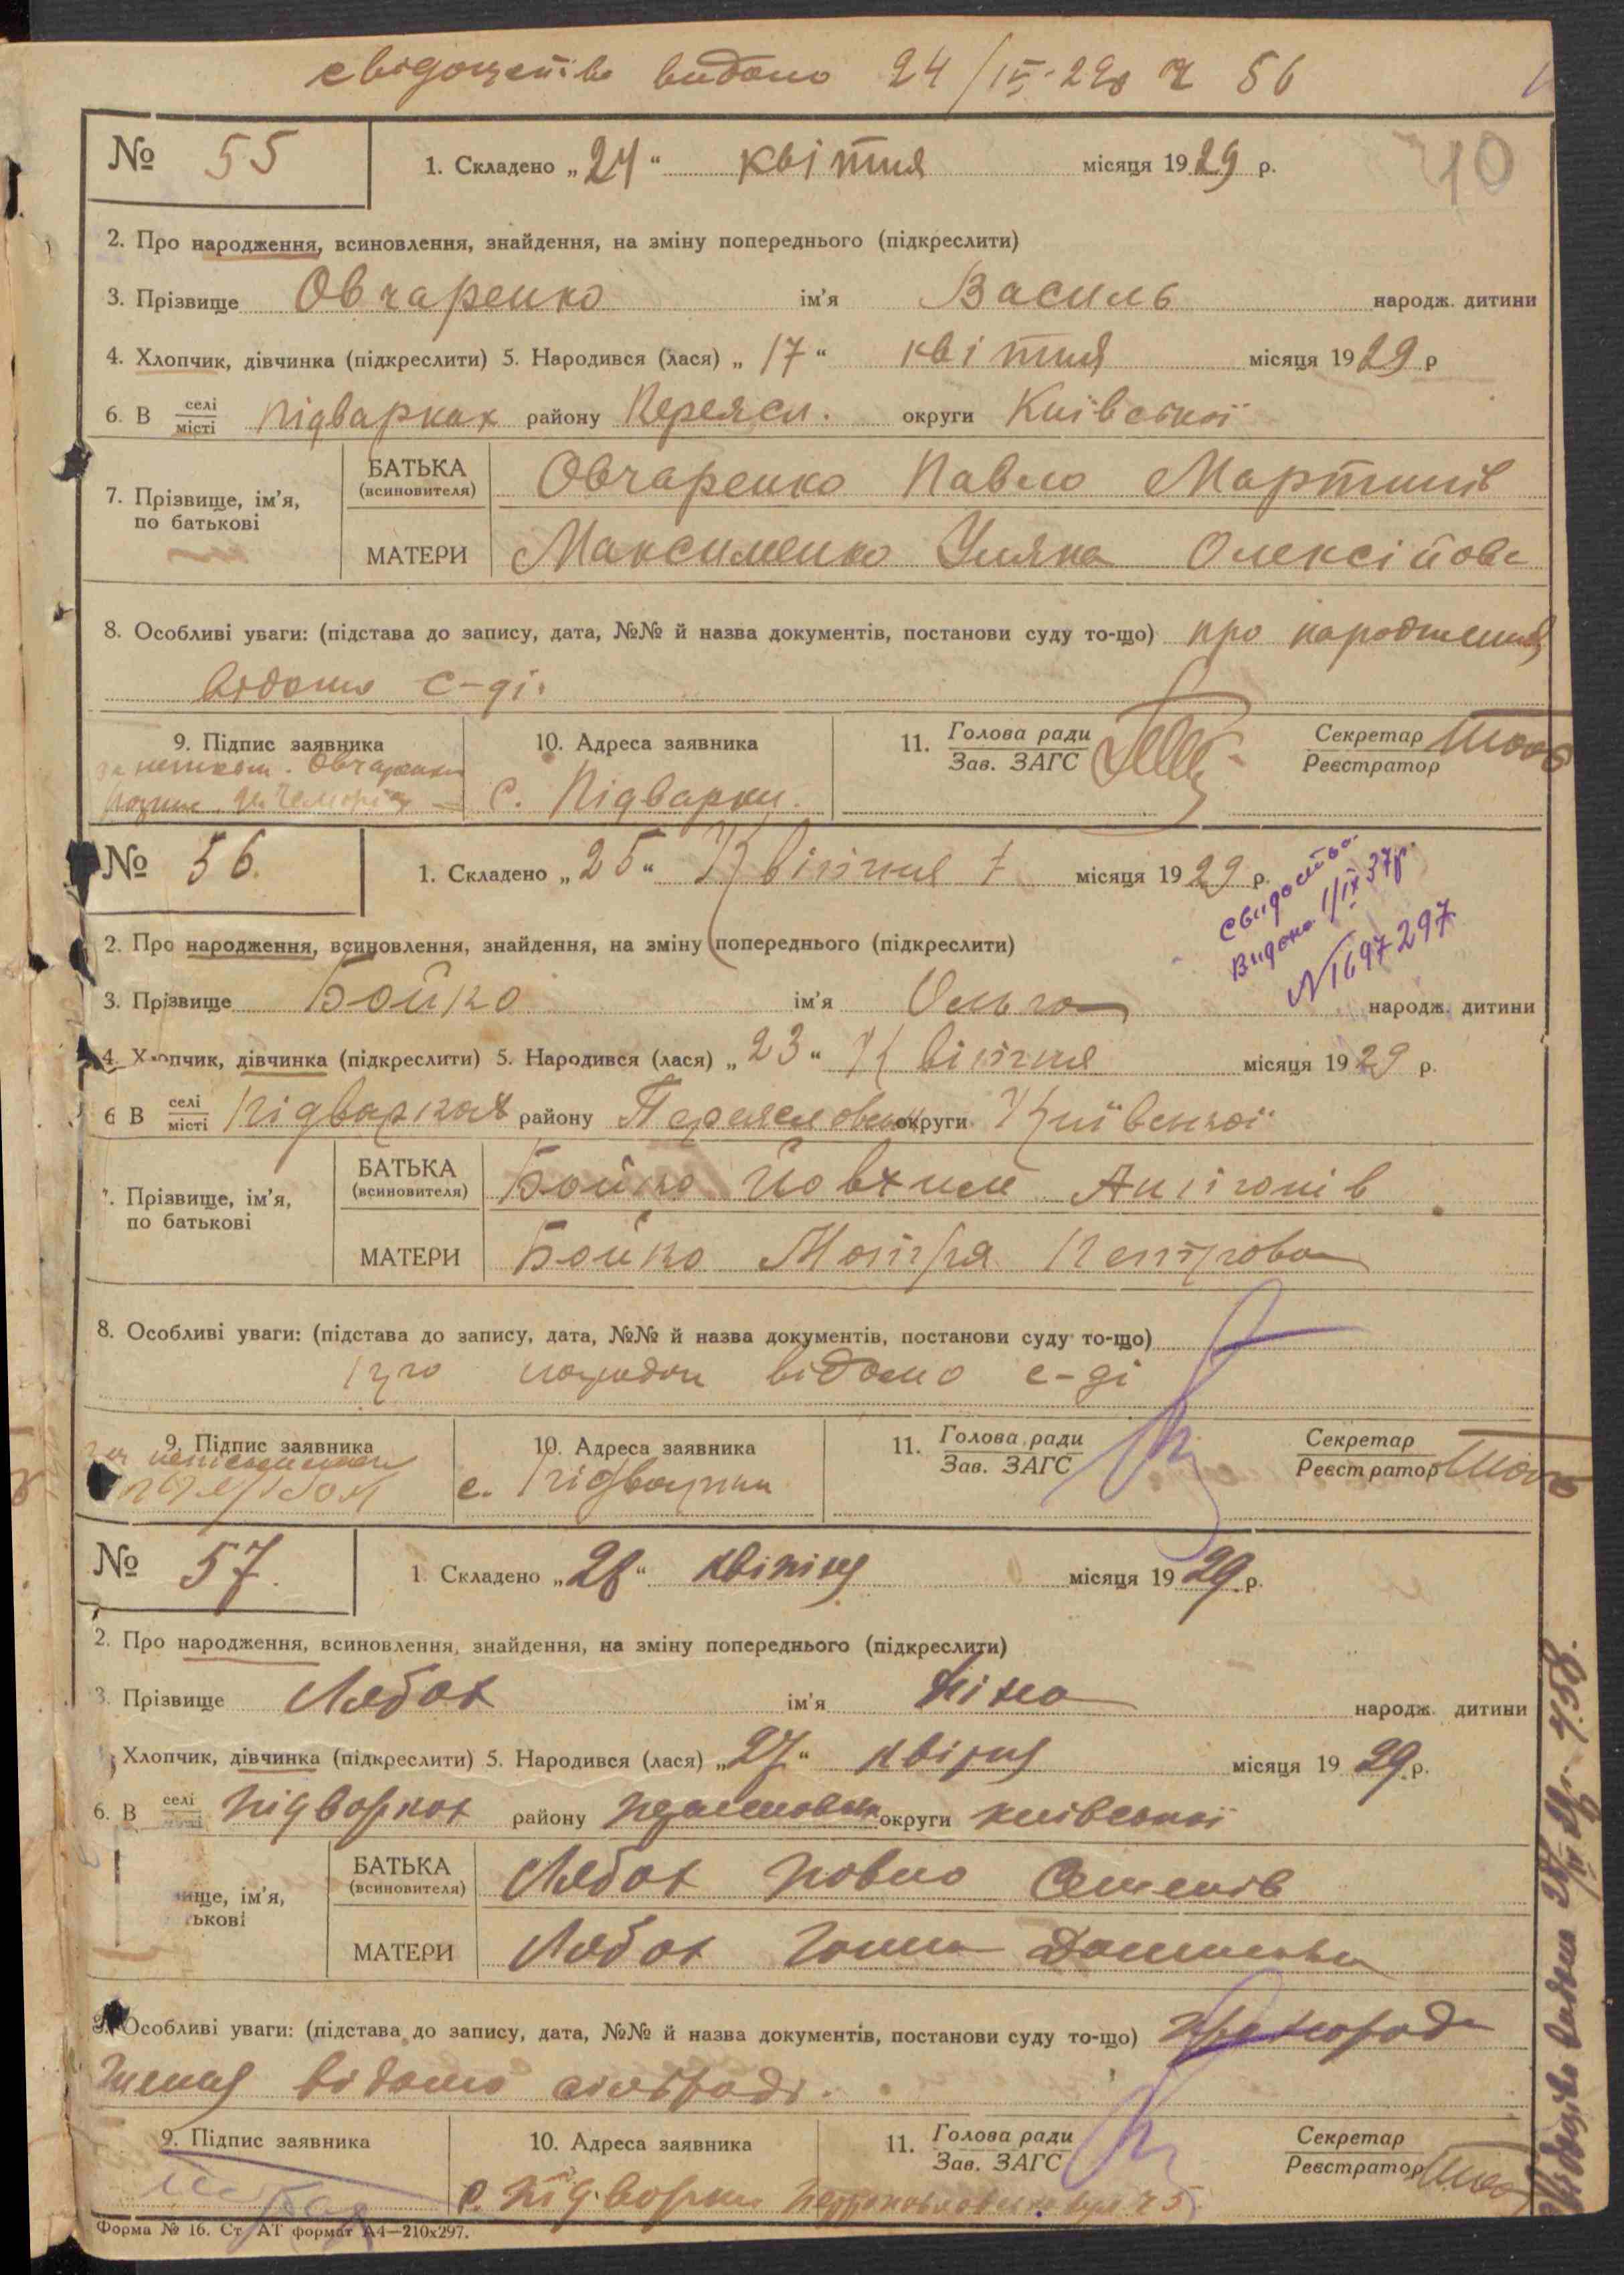 свідоцтво видано 24/IV-29 Ч 56
№ 55
1. Складено „24“ квітня місяця 1929 р.
40
2. Про народження, всиновлення, знайдення, на зміну попереднього (підкреслити)
3. Прізвище Овчаренко ім'я Василь народж. дитини
4. Хлопчик, дівчинка (підкреслити) 5. Народився (лася) „17“ квітня місяця 1929 р
6. В селі місті Підварках району Переясл. округи Київської
7. Прізвище, ім'я, по батькові
БАТЬКА (всиновителя) Овчаренко Павло Мартинів
МАТЕРИ Максименко Уляна Олексійовн
8. Особливі уваги: (підстава до запису, дата, №№ й назва документів, постанови суду то-що) про народження
відомо с-ді.
9. Підпис заявника
Овчаренко
10. Адреса заявника
с. Підварки.
11. Голова ради
Зав. ЗАГС
Секретар
Реєстратор
№ 56.
1. Складено „25“ Квітня місяця 1929 р.
Свидоство
Видано 1/IX 37р.
N 1697297
2. Про народження, всиновлення, знайдення, на зміну попереднього (підкреслити)
3. Прізвище Бойко ім'я Ольга народж. дитини
4. Хлопчик, дівчинка (підкреслити) 5. Народився (лася) „23“ Квітня місяця 1929 р.
6 В селі місті Підварках району Переяславськ округи Київської
7. Прізвище, ім'я, по батькові
БАТЬКА (всиновителя) Бойко Йовхим Антонів
МАТЕРИ Бойко Мотря Петрова
8. Особливі уваги: (підстава до запису, дата, №№ й назва документів, постанови суду то-що)
про народж відомо с-ді
9. Підпис заявника
10. Адреса заявника
с. Підварки
11. Голова ради
Зав. ЗАГС
Секретар
Реєстратор
№ 57.
1. Складено „28“ квітня місяця 1929 р.
2. Про народження, всиновлення, знайдення, на зміну попереднього (підкреслити)
3. Прізвище Лябах ім'я Ніна народж. дитини
Хлопчик, дівчинка (підкреслити) 5. Народився (лася) „27“ квітня місяця 1929 р.
6. В селі Підварках району округи київської
ище, ім'я,
ькові
БАТЬКА (всиновителя) Лябах Павло Семенів
МАТЕРИ Лябах Ганна
Особливі уваги: (підстава до запису, дата, №№ й назва документів, постанови суду то-що) про народ
ження відомо сільраді.
9. Підпис заявника
10. Адреса заявника
с. Підварки
11. Голова ради
Зав. ЗАГС
Секретар
Реєстратор
Форма № 16. Ст АТ формат А4—210x297.